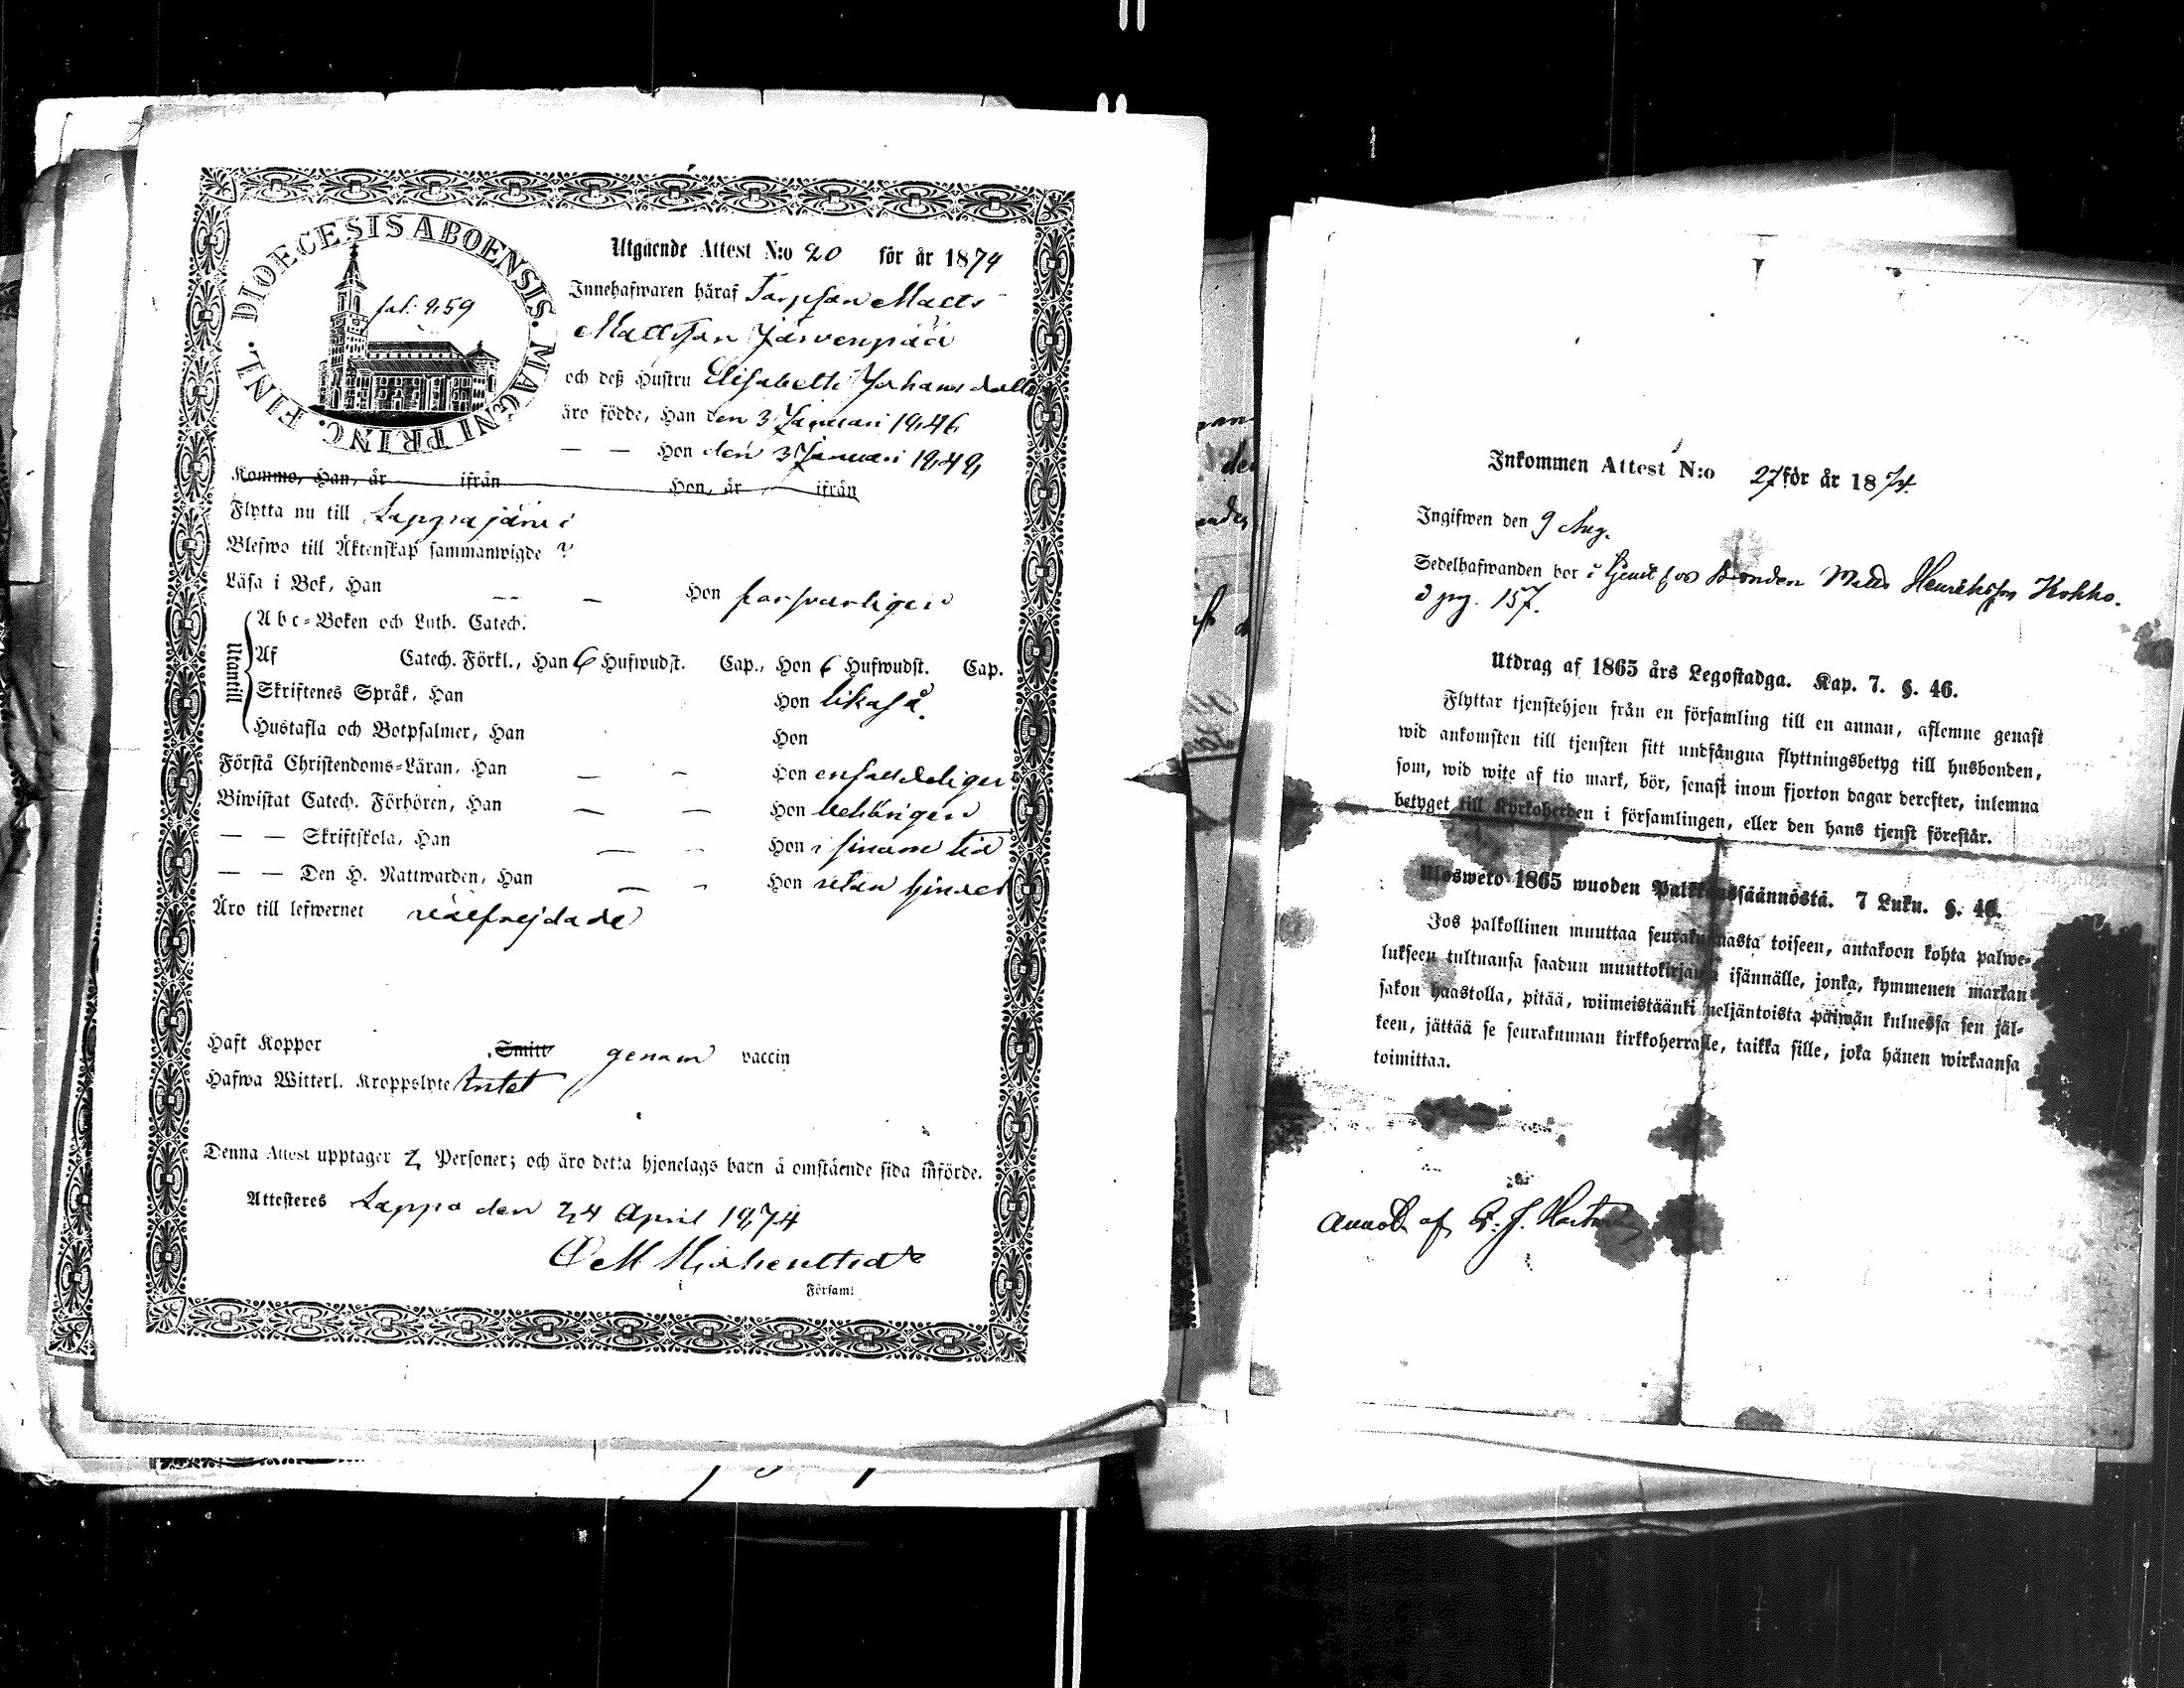 DIOECESIS ABOENSIS. MAGNI PRINC. FINL.
fol. 959
Utgående Attest N:o 20 för år 1874
Innehafwaren häraf Torpson Matts
Mattsson Järvenpää
och deß Hustru Elisabeth Johansdotter
äro födde, Han den 3 Januari 1846
— — Hon den 3 Januari 1848
Kommo, Han, år ifrån Hon, år ifrån
Flytta nu till Lappajärvi
Blefwo till Äktenskap sammanwigde ?
Läsa i Bok, Han — — Hon försvarligen
Utantill
Abc-Boken och Luth. Catech.
Af Catech. Förkl., Han 6 Hufwudst. Cap., Hon 6 Hufwudst. Cap.
Skriftenes Språk, Han Hon likaså
Hustafla och Botpsalmer, Han Hon
Förstå Christendoms-Läran, Han — — Hon enfaldeligen
Biwistat Catech. Förhören, Han — — Hon behörigen
— — Skriftskola, Han — — Hon i sinom tid
— — Den H. Nattwarden, Han — — Hon
Äro till lefwernet välfrejdade
Haft Koppor Smitt genom vaccin
Hafwa Witterl. Kroppslyte Intet
Denna Attest upptager 2 Personer; och äro detta hjonelags barn å omstående sida införde.
Attesteres Lappo den 24 April 1874
i Församl.
Inkommen Attest N:o 27 för år 1874.
Ingifwen den 9 Aug.
Sedelhafwanden bor i tjenst hos Bonden Matts Henriksson Kokko.
pg. 157.
Utdrag af 1865 års Legostadga. Kap. 7. §. 46.
Flyttar tjenstehjon från en församling till en annan, aflemne genast
wid ankomsten till tjensten sitt undfångna flyttningsbetyg till husbonden,
som, wid wite af tio mark, bör, senast inom fjorton dagar derefter, inlemna
betyget till Kyrkoherden i församlingen, eller den hans tjenst förestår.
Ulosweto 1865 wuoden Palkkaussäännöstä. 7 Luku. §. 46.
Jos palkollinen muuttaa seurakunnasta toiseen, antakoon kohta palwe-
lukseen tultuansa saadun muuttokirjansa isännälle, jonka, kymmenen markan
sakon haastolla, pitää, wiimeistäänki neljäntoista päiwän kuluessa sen jäl-
keen, jättää se seurakunnan kirkkoherralle, taikka sille, joka hänen wirkaansa
toimittaa.